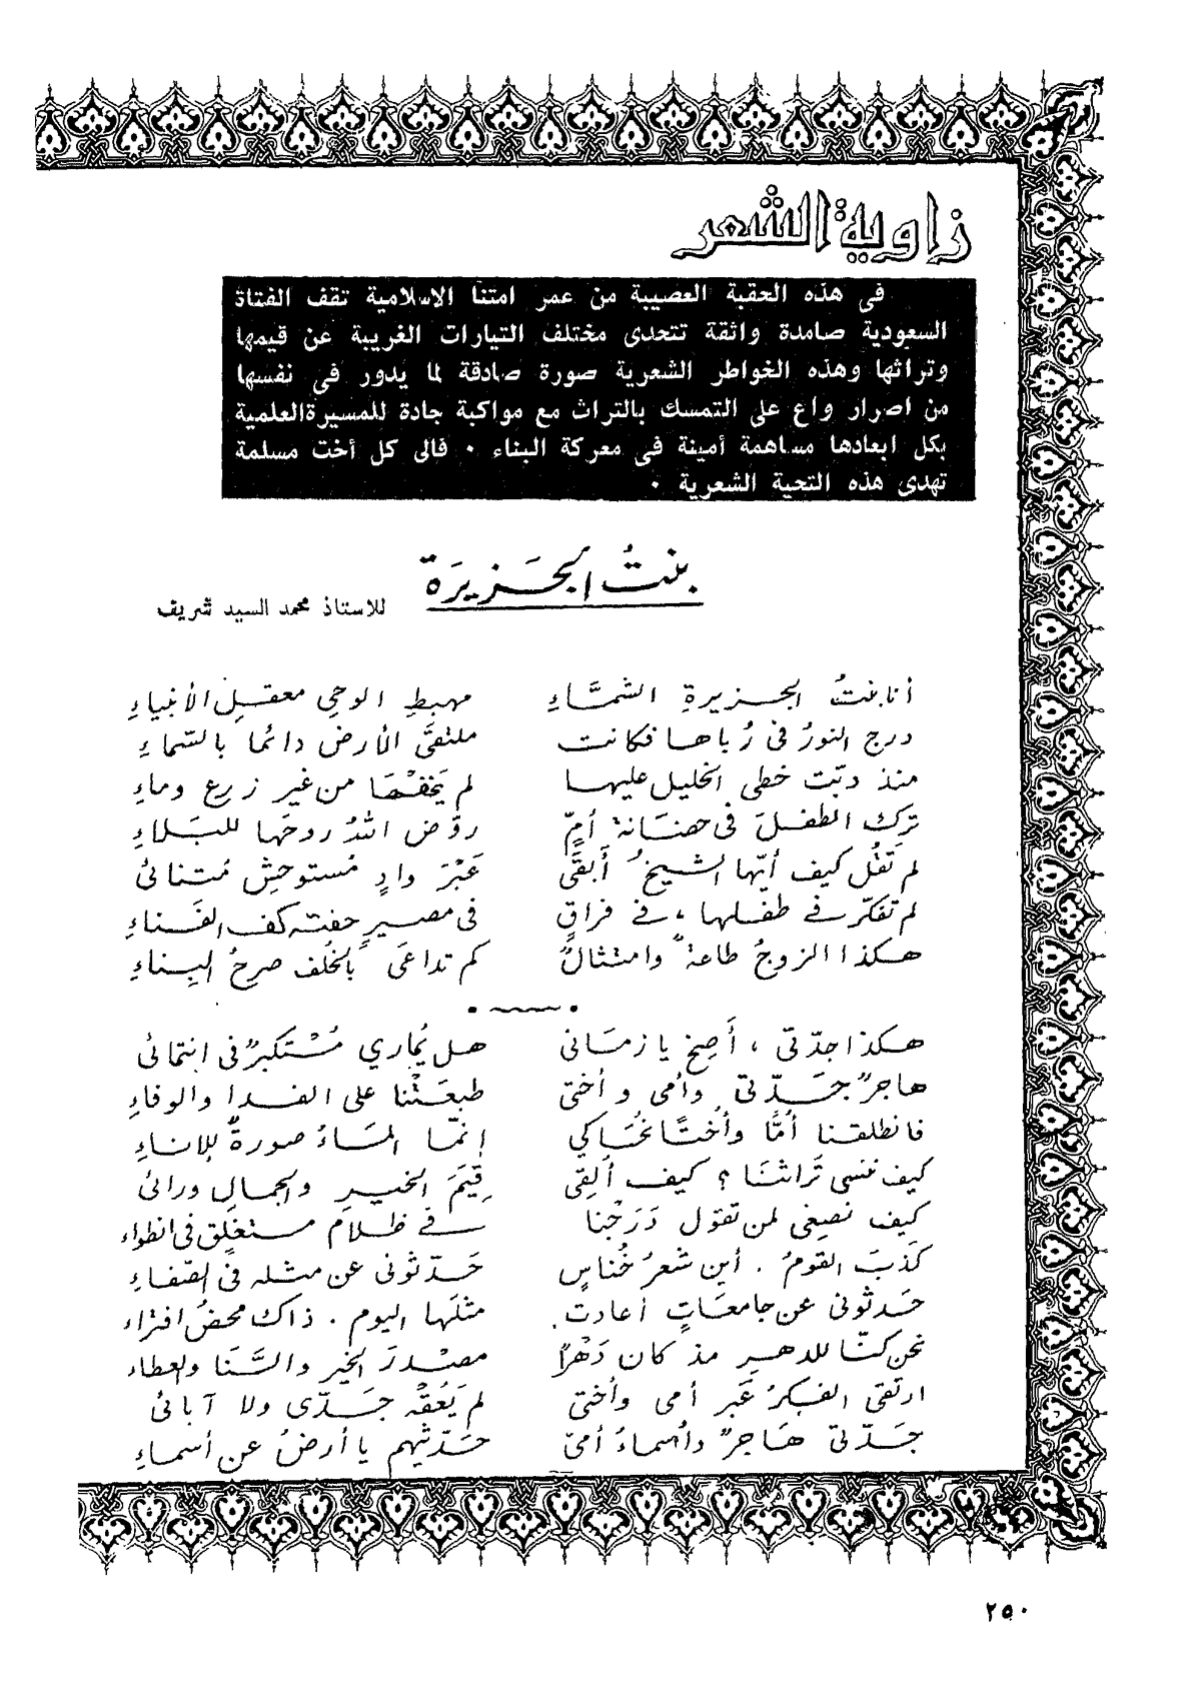 زاوية الشعر
فى هذه الحقبة العصيبة من عمر امتنا الاسلامية تقف الفتاة
السعودية صامدة واثقة تتحدى مختلف التيارات الغريبة عن قيمها
وتراثها وهذه الخواطر الشعرية صورة صادقة لما يدور فى نفسها
من اصرار واع على التمسك بالتراث مع مواكبة جادة للمسيرة العلمية
بكل ابعادها مساهمة أمينة فى معركة البناء ٠ فالى كل أخت مسلمة
تهدى هذه التحية الشعرية ٠
بنتُ الجَزيرَة
للاستاذ محمد السيد شريف
أنا بنتُ الجزيرةِ الشمَّاءِ مهبطِ الوحِي معقلِ الأنبياءِ
درج النورُ فى رُباها فكانت ملتقىَ الأرض دائمًا بالسّماءِ
منذ دبّت خطى الخليل عليها لم يَخَفْهَا من غير زرعٍ وماءِ
تركَ الطفلَ فى حضَانة أمٍّ روّض اللهُ روحَها للبَلاءِ
لم تقُل كيف أيّها الشيخُ أبقَى عَبْرَ وادٍ مُستوحشِ مُتنائى
لم تفكّر فى طفلها، فى فراقٍ فى مصيرٍ حفته كف الفَناءِ
هكذا الزوجُ طاعةٌ وامتثالٌ كم تداعَى بالخُلف صرحُ البِناءِ
هكذا جدّتى ، أَصِخ يا زمَانى هل يُمارى مُسْتكبرٌ فى انتمائى
هاجرٌ جَدّتى وأمى وأختى طبعَتْنا على الفدا والوفاءِ
فانطلقنا أمًّا وأختًا نُحَاكى إنّما المَاءُ صورةٌ للإناءِ
كيف ننسى تَراثنَا ؟ كيف أُلقى قِيَمَ الخيرِ والجمالِ ورائى
كيف نصغى لمن تقول دَرَجْنا فى ظلام مستغلِق فى انطواء
كَذبَ القومُ . أين شعرُ خُناسٍ حَدّثونى عن مثله فى الصّفاءِ
حَدثونى عن جامعَاتٍ أعادت مثلَها اليوم . ذاك محضُ افتراء
نحن كنّا للدهرِ مذ كان دَهْرًا مصْدرَ الخير والسَّنَا والعطاء
ارتقى الفكرُ عَبر أمى وأختى لم يَعُقْه جَدّى ولا آبائى
جَدّتى هَاجرٌ وأسماءُ أمىّ حَدّثيهم يا أرضُ عن أسماءِ
٢٥٠